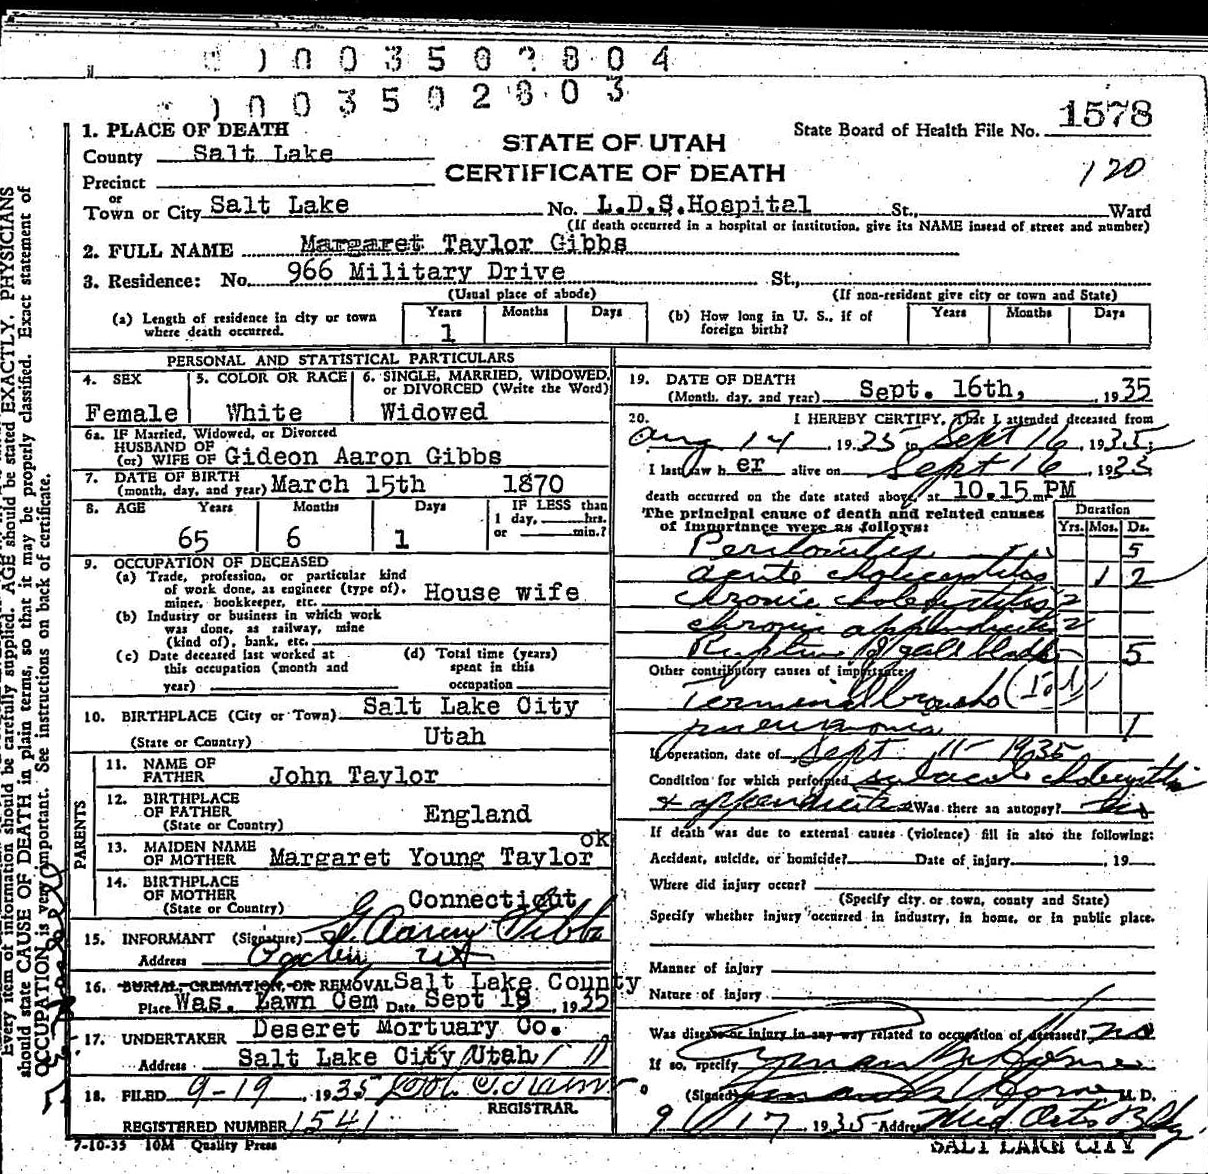 003502804
003502803
1578
1. PLACE OF DEATH
STATE OF UTAH
State Board of Health File No.
County Salt Lake
CERTIFICATE OF DEATH
120
Precinct
or
Town or City Salt Lake No. L.D.S.Hospital St., Ward
(If death occurred in a hospital or institution, give its NAME insead of street and number)
2. FULL NAME Margaret Taylor Gibbs
3. Residence: No. 966 Military Drive St.,
(Usual place of abode) (If non-resident give city or town and State)
(a) Length of residence in city or town where death occurred. Years 1 Months Days
(b) How long in U. S., if of foreign birth? Years Months Days
PERSONAL AND STATISTICAL PARTICULARS
4. SEX Female
5. COLOR OR RACE White
6. SINGLE, MARRIED, WIDOWED, or DIVORCED (Write the Word) Widowed
6a. IF Married, Widowed, or Divorced
HUSBAND OF
(or) WIFE OF Gideon Aaron Gibbs
7. DATE OF BIRTH
(month, day, and year) March 15th 1870
8. AGE Years 65 Months 6 Days 1 IF LESS than 1 day, hrs. or min.?
9. OCCUPATION OF DECEASED
(a) Trade, profession, or particular kind
of work done, as engineer (type of),
miner, bookkeeper, etc. House wife
(b) Industry or business in which work
was done, as railway, mine
(kind of), bank, etc.
(c) Date deceased last worked at
this occupation (month and
year)
(d) Total time (years)
spent in this
occupation
10. BIRTHPLACE (City or Town) Salt Lake City
(State or Country) Utah
PARENTS
11. NAME OF
FATHER John Taylor
12. BIRTHPLACE
OF FATHER England
(State or Country)
13. MAIDEN NAME ok
OF MOTHER Margaret Young Taylor
14. BIRTHPLACE
OF MOTHER Connecticut
(State or Country)
15. INFORMANT (Signature) G. Aaron Gibbs
Address Ogden Ut
16. BURIAL, CREMATION, OR REMOVAL Salt Lake County
Place Was. Lawn Cem Date Sept 18, 1935
17. UNDERTAKER Deseret Mortuary Co.
Address Salt Lake City Utah
18. FILED 9-19, 1935
REGISTRAR
REGISTERED NUMBER 1541
7-10-35 10M Quality Press
19. DATE OF DEATH
(Month, day, and year) Sept. 16th, 1935
20. I HEREBY CERTIFY, That I attended deceased from
Aug 14, 1935 to Sept 16, 1935;
I last saw h er alive on Sept 16 1935
death occurred on the date stated above, at 10.15 m PM
The principal cause of death and related causes
of importance were as follows:
Duration
Yrs. Mos. Ds.
Peritonitis 5
acute cholecystitis 1 2
chronic cholecystitis 2
chronic appendicitis 2
Rupture of gall bladder 5
Other contributory causes of importance:
Terminal broncho
pneumonia 1
If operation, date of Sept 11-1935
Condition for which performed subacute cholecystitis
& appendicitis Was there an autopsy? no
If death was due to external causes (violence) fill in also the following:
Accident, suicide, or homicide? Date of injury , 19
Where did injury occur?
(Specify city or town, county and State)
Specify whether injury occurred in industry, in home, or in public place.
Manner of injury
Nature of injury
Was disease or injury in any way related to occupation of deceased? no
If so, specify Lyman Horne
(Signed) Lyman Horne M. D.
9/17 1935 Address Med Arts Bldg
SALT LAKE CITY
Every item of information should be carefully supplied. AGE should be stated EXACTLY. PHYSICIANS
should state CAUSE OF DEATH in plain terms, so that it may be properly classified. Exact statement of
OCCUPATION is very important. See instructions on back of certificate.